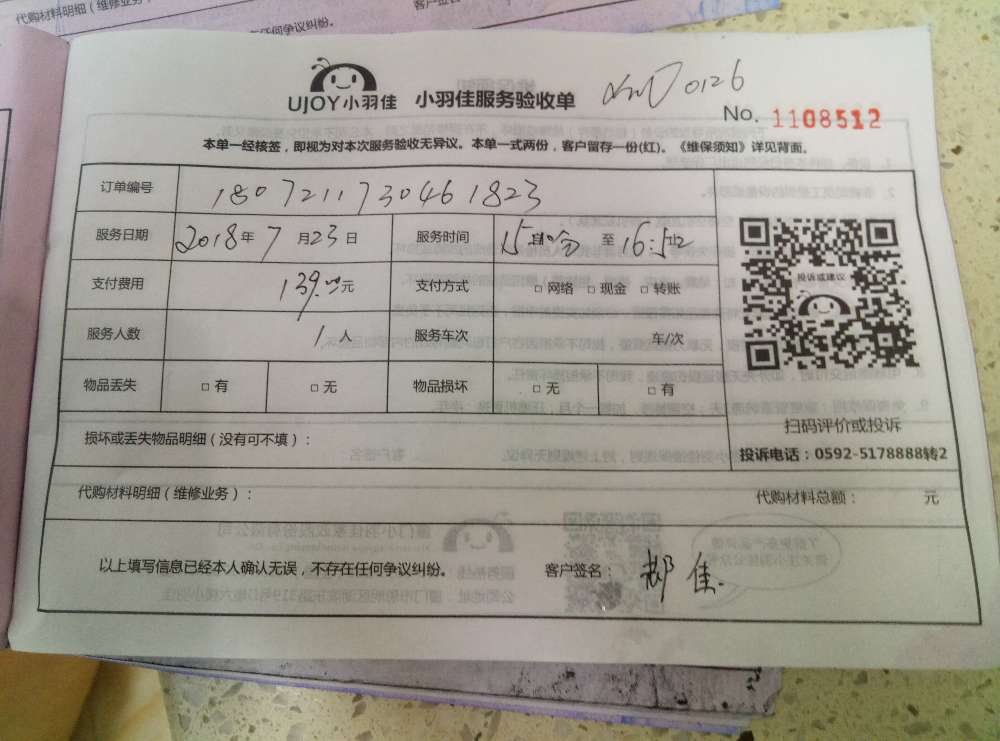 代购材料明细（维修业务）
客户签名
任何争议纠纷。
UJOY小羽佳 小羽佳服务验收单 0126
No. 1108512
本单一经核签，即视为对本次服务验收无异议。本单一式两份，客户留存一份(红)。《维保须知》详见背面。
订单编号 180721173046 1823
服务日期 2018年 7 月 23 日 服务时间 15 至 16:52
支付费用 139.00元 支付方式 □ 网络 □ 现金 □ 转账
服务人数 1 人 服务车次 车/次
物品丢失 □ 有 □ 无 物品损坏 □ 无 □ 有
投诉或建议
扫码评价或投诉
损坏或丢失物品明细（没有可不填）：
投诉电话：0592-5178888转2
代购材料明细（维修业务）： 代购材料总额： 元
以上填写信息已经本人确认无误，不存在任何争议纠纷。 客户签名： 郝佳